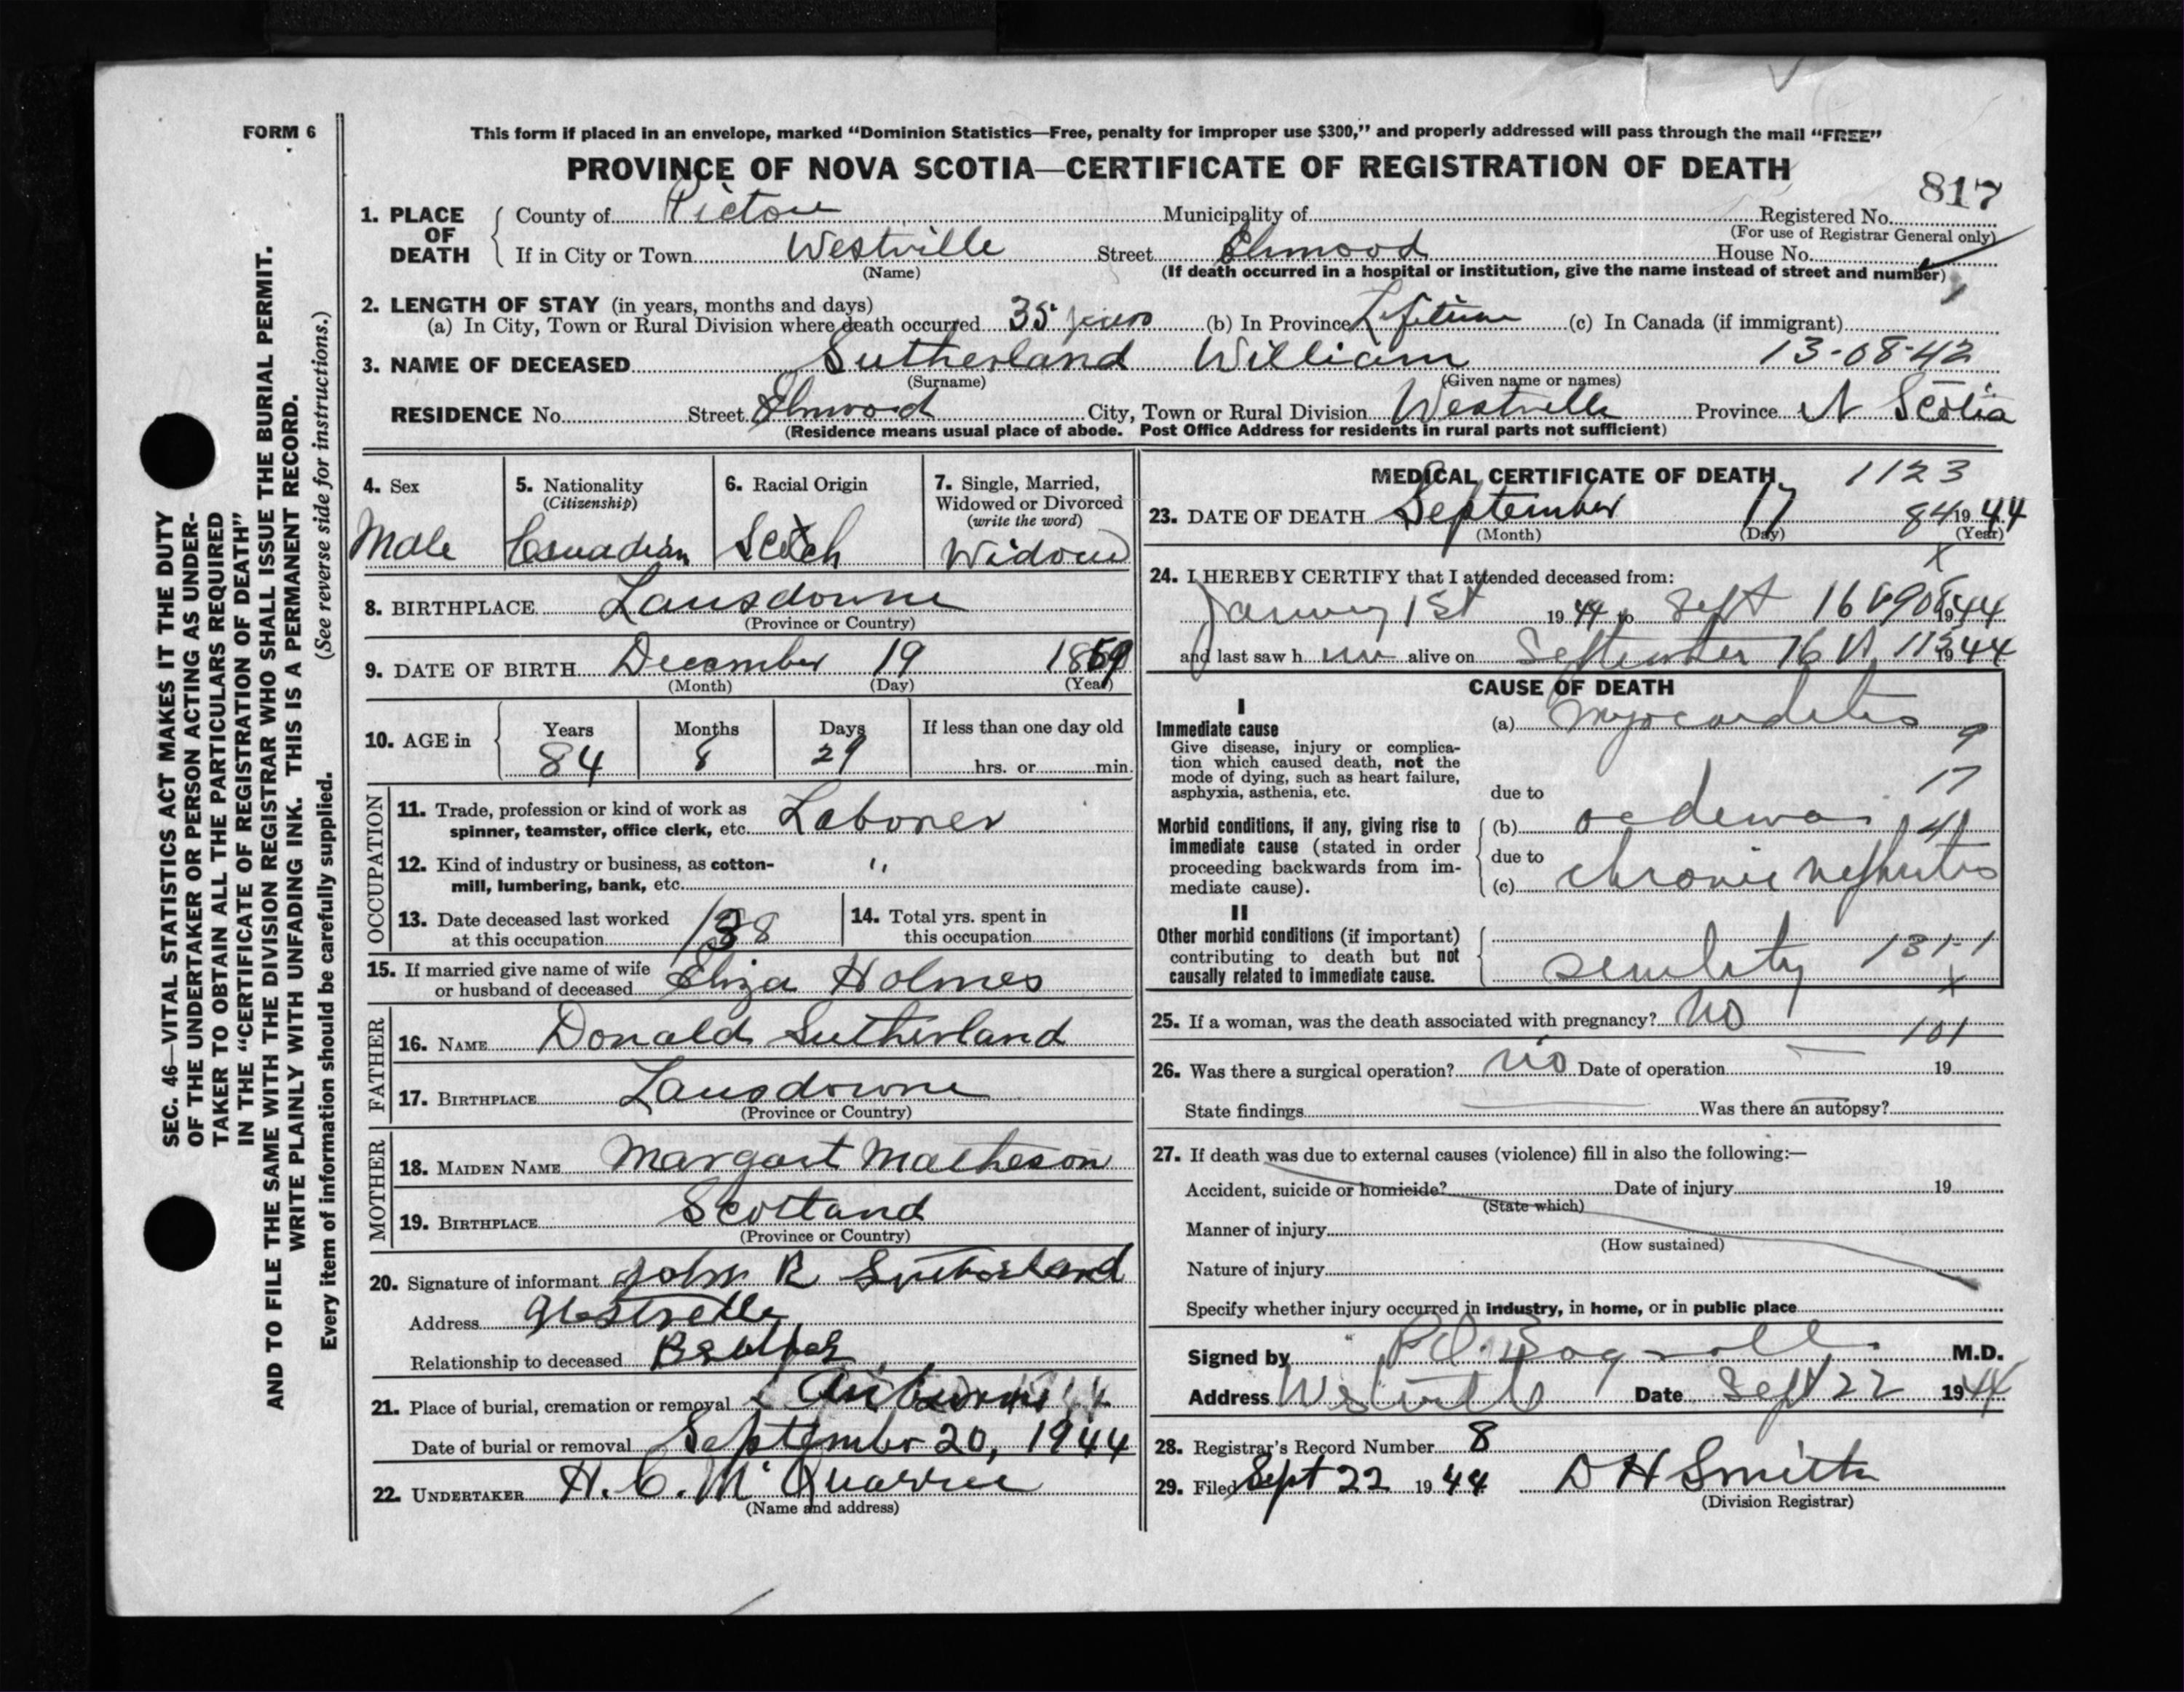 FORM 6
This form if placed in an envelope, marked “Dominion Statistics—Free, penalty for improper use $300,” and properly addressed will pass through the mail “FREE”
PROVINCE OF NOVA SCOTIA—CERTIFICATE OF REGISTRATION OF DEATH
817
1. PLACE OF DEATH County of Pictou Municipality of Registered No.
(For use of Registrar General only)
If in City or Town Westville Street Elmwood House No.
(Name) (If death occurred in a hospital or institution, give the name instead of street and number)
2. LENGTH OF STAY (in years, months and days)
(a) In City, Town or Rural Division where death occurred 35 years (b) In Province Lifetime (c) In Canada (if immigrant)
3. NAME OF DECEASED Sutherland William 13-08-42
(Surname) (Given name or names)
RESIDENCE No. Street Elmwood City, Town or Rural Division Westville Province N Scotia
(Residence means usual place of abode. Post Office Address for residents in rural parts not sufficient)
4. Sex Male
5. Nationality (Citizenship) Canadian
6. Racial Origin Scotch
7. Single, Married, Widowed or Divorced (write the word) Widow
8. BIRTHPLACE Lansdowne
(Province or Country)
9. DATE OF BIRTH December 19 1859
(Month) (Day) (Year)
10. AGE in Years 84 Months 8 Days 29 If less than one day old hrs. or min.
OCCUPATION
11. Trade, profession or kind of work as spinner, teamster, office clerk, etc. Laborer
12. Kind of industry or business, as cotton-mill, lumbering, bank, etc. "
13. Date deceased last worked at this occupation
14. Total yrs. spent in this occupation
15. If married give name of wife or husband of deceased Eliza Holmes
FATHER
16. NAME Donald Sutherland
17. BIRTHPLACE Lansdowne
(Province or Country)
MOTHER
18. MAIDEN NAME Margart Matheson
19. BIRTHPLACE Scotland
(Province or Country)
20. Signature of informant John R Sutherland
Address Westville
Relationship to deceased Brother
21. Place of burial, cremation or removal
Date of burial or removal September 20, 1944
22. UNDERTAKER H. C. McQuarrie
(Name and address)
MEDICAL CERTIFICATE OF DEATH 1123
23. DATE OF DEATH September 17 84 1944
(Month) (Day) (Year)
24. I HEREBY CERTIFY that I attended deceased from:
January 1st 1944 to Sept 16 1944
and last saw h alive on September 16 1944
CAUSE OF DEATH
I
Immediate cause
Give disease, injury or complication which caused death, not the mode of dying, such as heart failure, asphyxia, asthenia, etc.
(a) myocarditis
9
17
due to
Morbid conditions, if any, giving rise to immediate cause (stated in order proceeding backwards from immediate cause).
(b) oedema
due to
(c) chronic nephritis
II
Other morbid conditions (if important) contributing to death but not causally related to immediate cause.
senility 131-1
25. If a woman, was the death associated with pregnancy? No
101
26. Was there a surgical operation? no Date of operation 19
State findings Was there an autopsy?
27. If death was due to external causes (violence) fill in also the following:—
Accident, suicide or homicide? Date of injury 19
(State which)
Manner of injury
(How sustained)
Nature of injury
Specify whether injury occurred in industry, in home, or in public place
Signed by M.D.
Address Westville Date Sept 22 1944
28. Registrar's Record Number 8
29. Filed Sept 22 1944 D H Smith
(Division Registrar)
SEC. 46—VITAL STATISTICS ACT MAKES IT THE DUTY
OF THE UNDERTAKER OR PERSON ACTING AS UNDER-
TAKER TO OBTAIN ALL THE PARTICULARS REQUIRED
IN THE “CERTIFICATE OF REGISTRATION OF DEATH”
AND TO FILE THE SAME WITH THE DIVISION REGISTRAR WHO SHALL ISSUE THE BURIAL PERMIT.
WRITE PLAINLY WITH UNFADING INK. THIS IS A PERMANENT RECORD.
Every item of information should be carefully supplied. (See reverse side for instructions.)